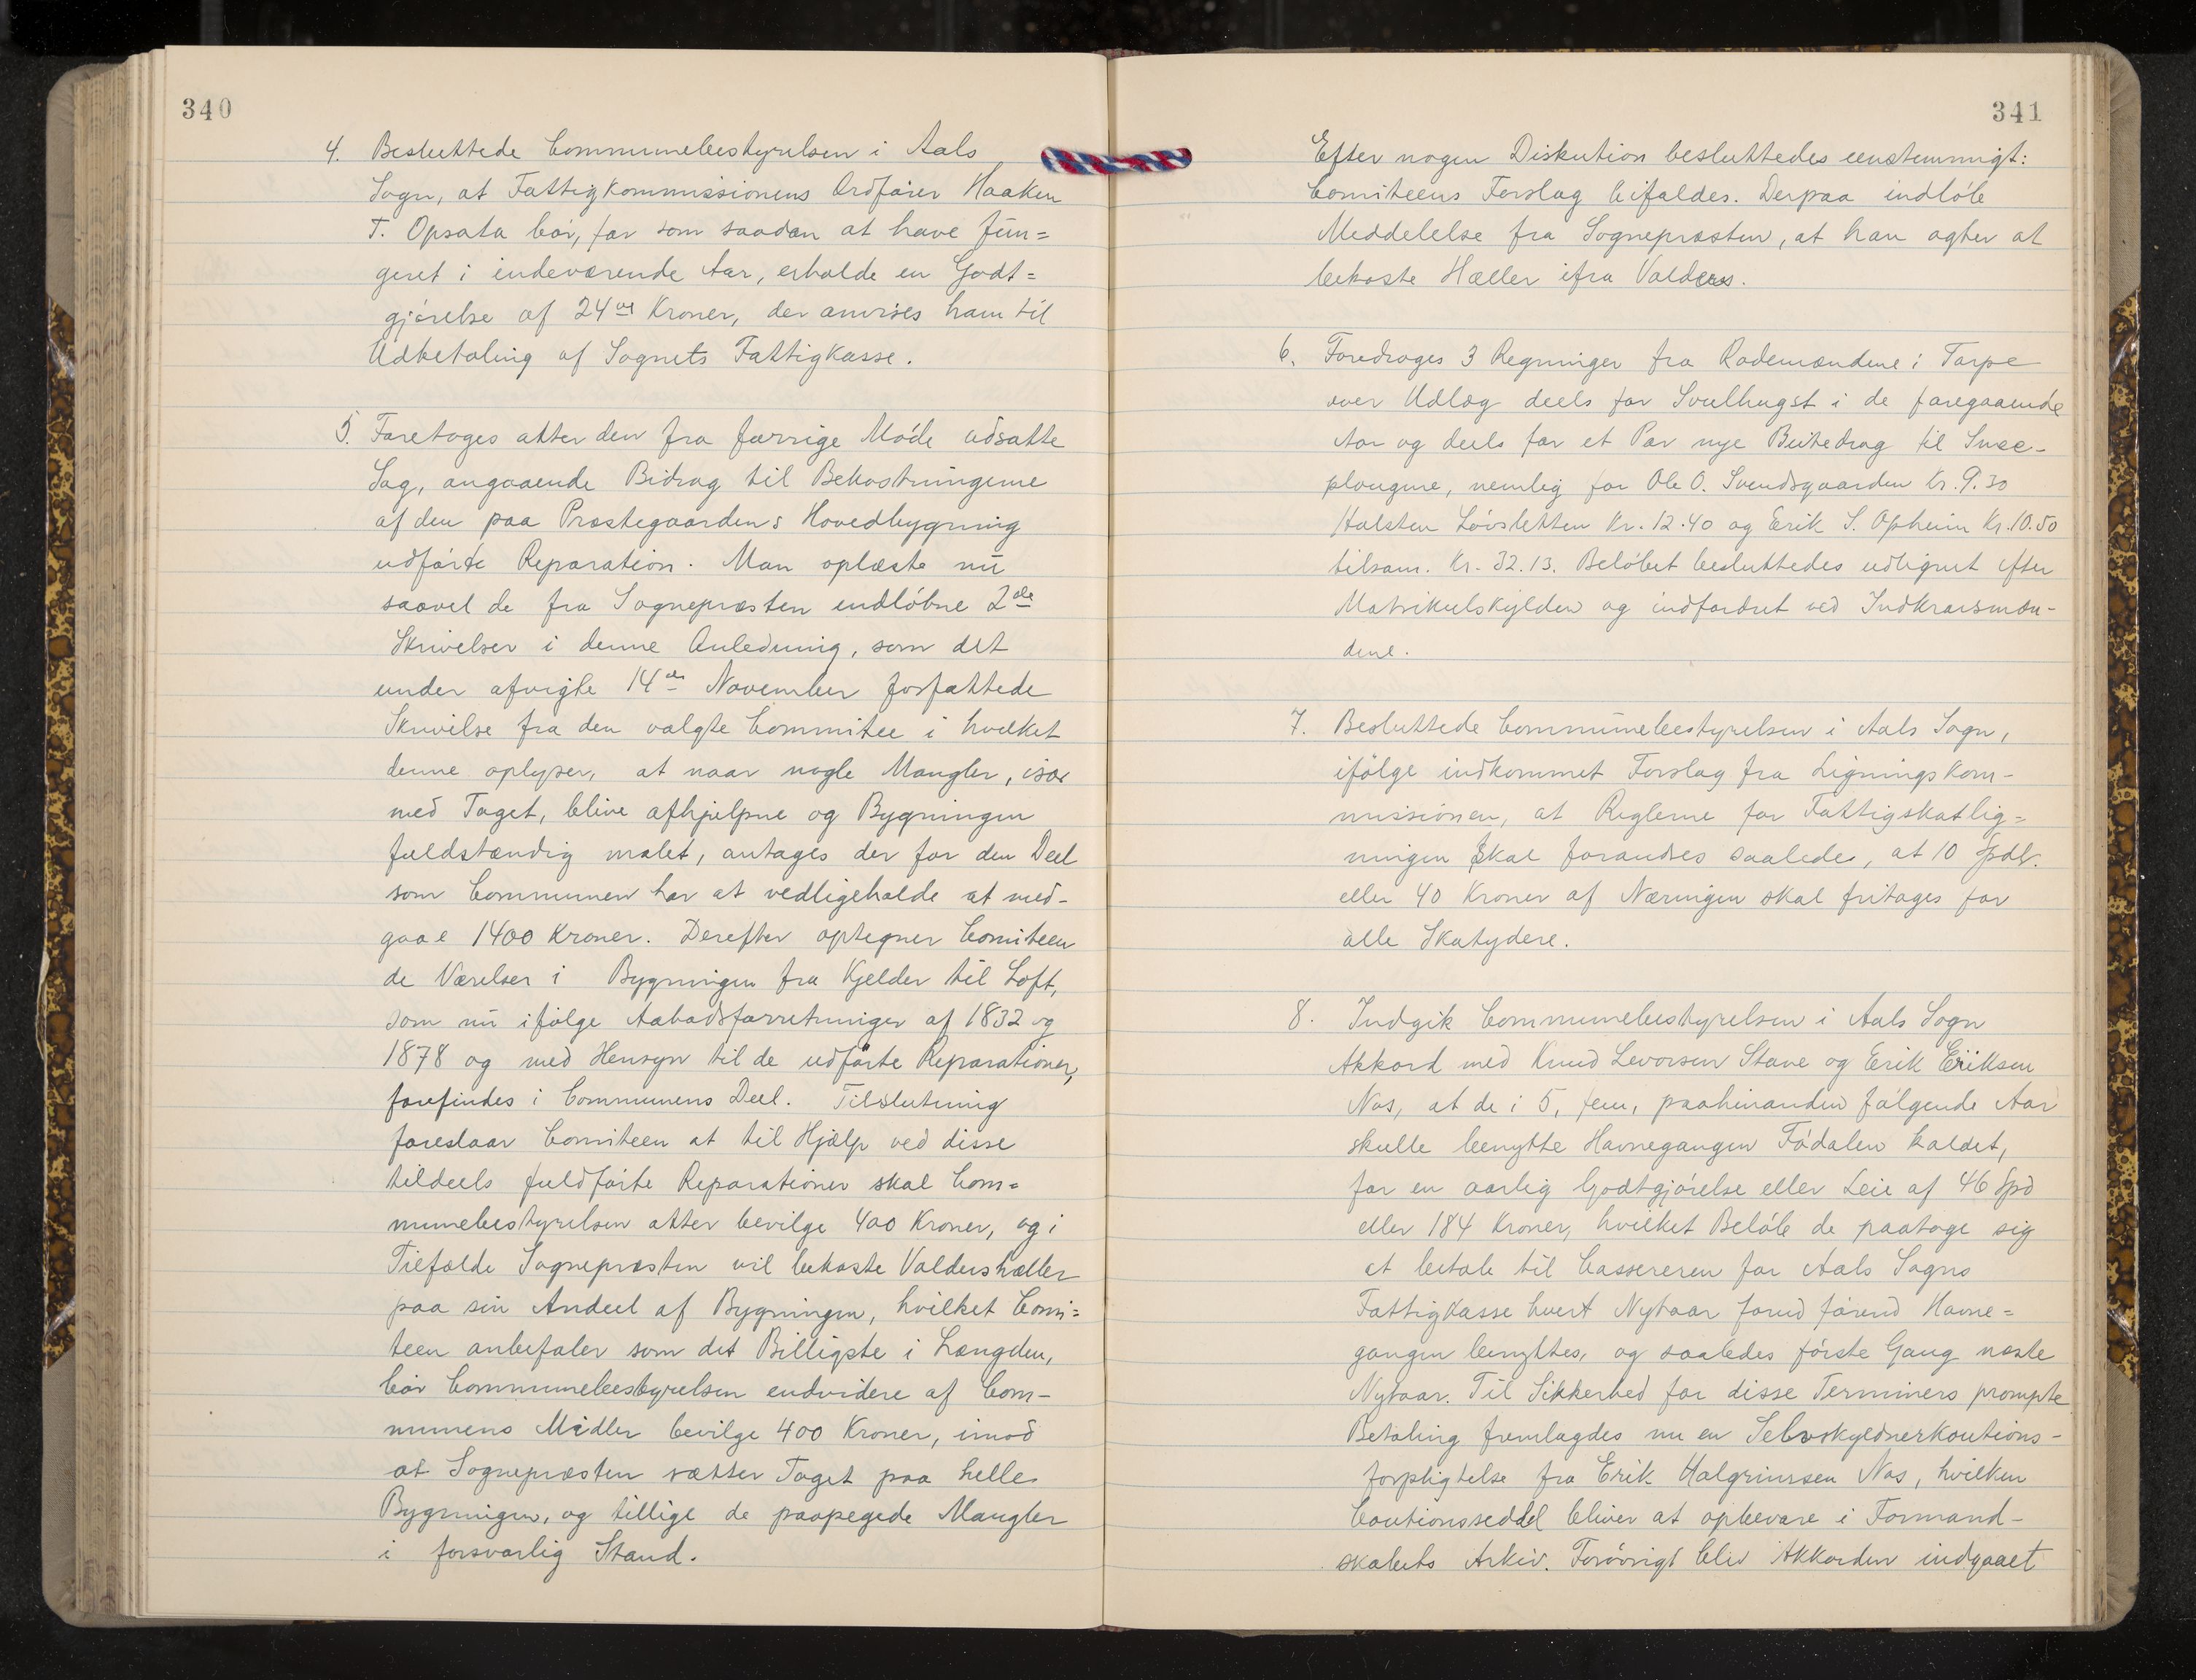 340
4. Besluttede Communebestyrelsen i Aals
Sogn, at Fattigkommissionens Ordfører Haaken
T. Opsata bør, for som saadan at have fun=
geret i indeværende Aar, erholde en Godt=
gjørelse af 24 Kroner, der anvises ham til
Udbetaling af Sognets Fattigkasse.
5. Foretoges atter den fra forrige Møde udsatte
Sag, angaaende Bidrag til Bekostningerne
af den paa Præstegaardens Hovedbygning
udførte Reparation. Man oplæste nu
saavel de fra Sognepræsten indløbne 2de
Skrivelser i denne Anledning, som det
under afvigte 14de November forfattede
Skrivelse fra den valgte Commitee i hvilket
denne oplyser, at naar nogle Mangler, især
med Taget, blive afhjelpne og Bygningen
fuldstændig malet, antages der for den Deel
som Communen har at vedligeholde at med-
gaae 1400 Kroner. Derefter optegner Comiteen
de Værelser i Bygningen fra Kjelder til Loft,
som nu ifølge Aabodsforretninger af 1832 og
1878 og med Hensyn til de udførte Reparationer,
forefindes i Communens Deel. Tilslutning
foreslaar Comiteen at til Hjælp ved disse
tildeels fuldførte Reparationer skal Com=
munebestyrelsen atter bevilge 400 Kroner, og i
Tilfælde Sognepræsten vil bekoste Valdershæller
paa sin Andeel af Bygningen, hvilket Comi=
teen anbefaler som det Billigste i Længden,
bør Communebestyrelsen endvidere af Com-
munens Midler bevilge 400 Kroner, imod
at Sognepræsten sætter Taget paa helle
Bygningen, og tillige de paapegede Mangler
i forsvarlig Stand.
341
Efter nogen Diskution besluttedes eenstemmigt:
Comiteens Forslag bifaldes. Derpaa indløb
Meddelelse fra Sognepræsten, at han agter at
bekoste Hæller ifra Valders.
6. Foredroges 3 Regninger fra Rodemændene i Torpe
over Udlæg deels for Svelhugst i de foregaaende
Aar og deels for et Par nye Beitedrag til Snee-
plougene, nemlig for Ole O. Svendsgaarden Kr. 9.30
Halsten Løvsletten Kr. 12.40 og Erik S. Opheim Kr. 10.50
tilsam. Kr. 32.13. Beløbet besluttedes udlignet efter
Matrikulskylden og indfordret ved Indkrævsmæn-
dene.
7. Besluttede Communebestyrelsen i Aals Sogn,
ifølge indkommet Forslag fra Ligningskom-
missionen, at Reglerne for Fattigskatlig=
ningen skal forandres saaledes, at 10 Spdlr.
eller 40 Kroner af Næringen skal fritages for
alle Skatydere.
8. Indgik Communebestyrelsen i Aals Sogn
Akkord med Knud Levorsen Stave og Erik Eriksen
Nos, at de i 5, fem, paahinanden følgende Aar
skulle benytte Havnegangen Fødalen kaldet,
for en aarlig Godtgjørelse eller Leie af 46 Spd
eller 184 Kroner, hvilket Beløb de paatoge sig
at betale til Cassereren for Aals Sogns
Fattigkasse hvert Nytaar forud førend Havne=
gangen benyttes, og saaledes første Gang næste
Nytaar. Til Sikkerhed for disse Terminers prompte
Betaling fremlagdes nu en Selvskyldnerkautions-
forpligtelse fra Erik Halgrimsen Nos, hvilken
Coutionsseddel bliver at opbevare i Formand-
skabets Arkiv. Forøvrigt blev Akkorden indgaaet